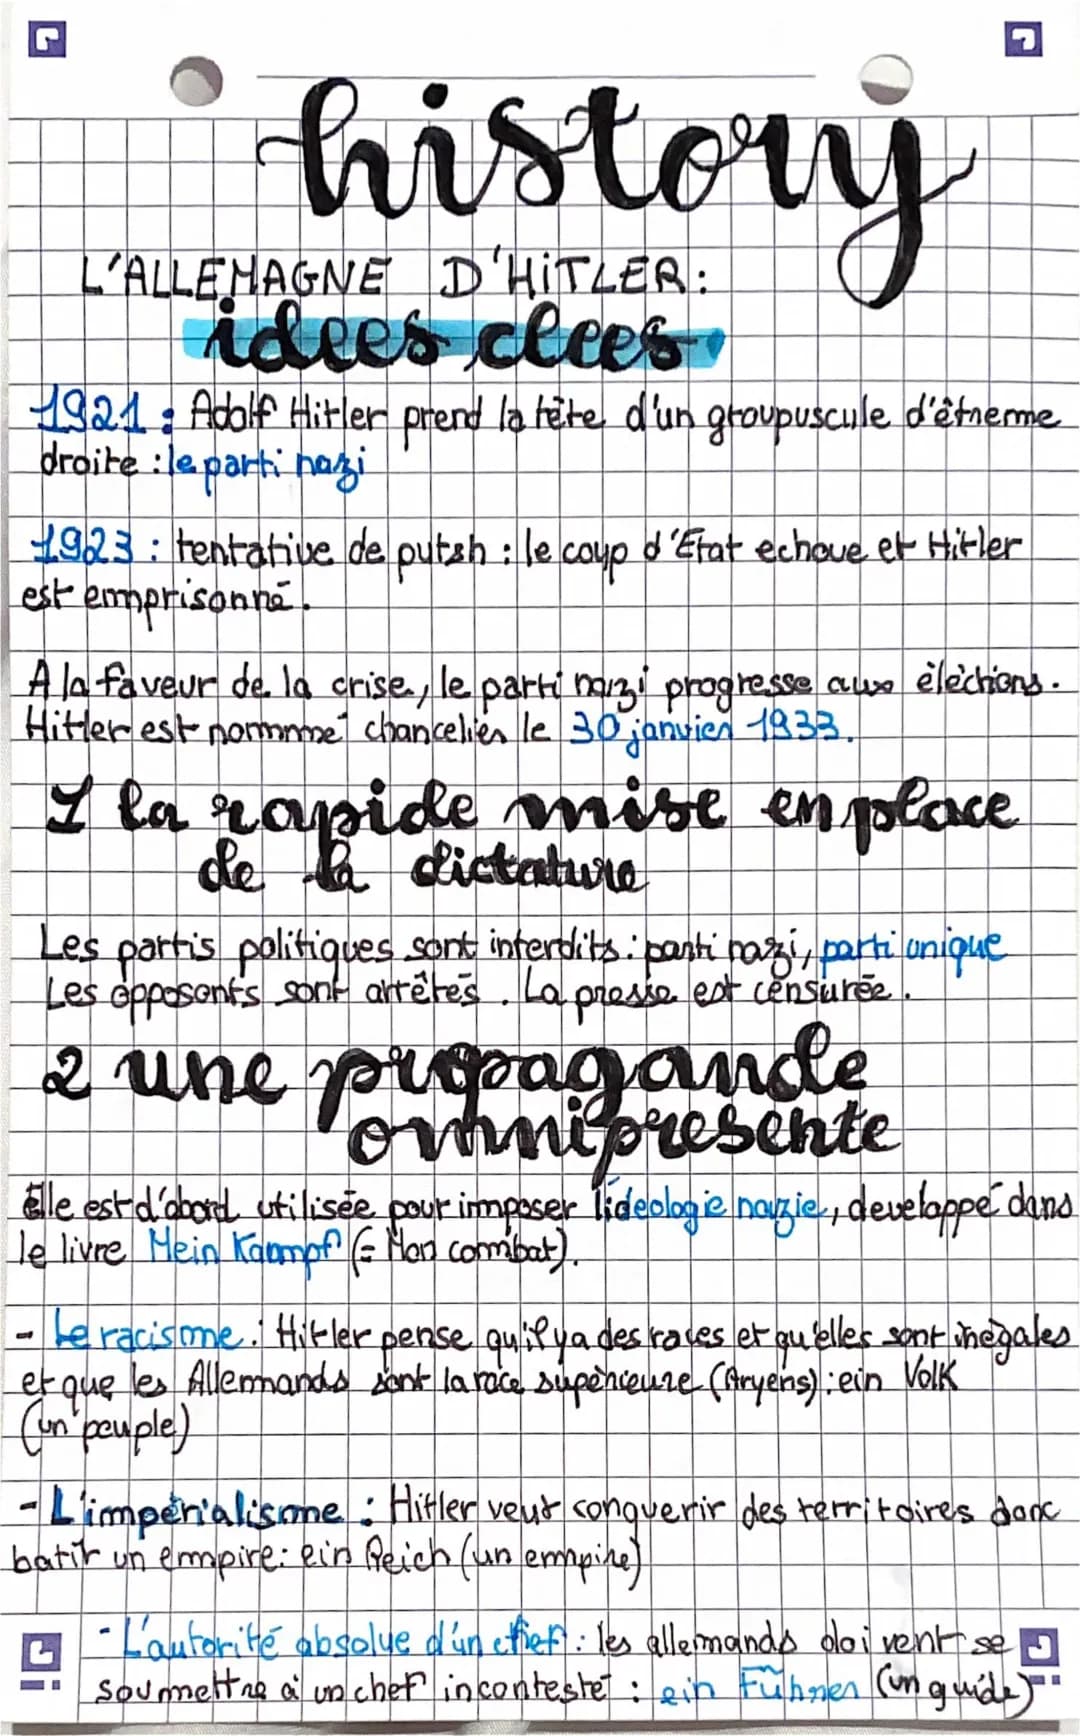 history
L'ALLEMAGNE D'HiTLER:
idees clees
1921 : Adolf Hitler prend la tête d'un groupuscule d'êtreme
droite : le parti nazi
1923 : tentative de putsh : le coup d'Etat echoue et Hitler
est emprisonné.
A la faveur de la crise, le parti nazi progresse aux élèctions.
Hitler est nommmé chancelier le 30 janvier 1933.
1 la rapide mise en place
de la dictature
Les partis politiques sont interdits : parti nazi, parti unique
Les opposents sont arrêtés. La presse est censurée.
2 une propagande
omnipresente
Elle est d'abord utilisée pour imposer l'ideologie nazie, developpé dans
le livre Mein Kaampf (= Mon combat).
- Le racisme : Hitler pense qu'il ya des races et qu'elles sont inégales
et que les Allemands sont la race supérieure (Aryens) : ein Volk
(un peuple)
- L'impérialisme : Hitler veut conquerir des territoires donc
batir un empire : ein Reich (un empire)
- L'autorité absolue d'un chef : les allemands doivent se
soumettre à un chef incontesté : ein Fûhrer (un guide)